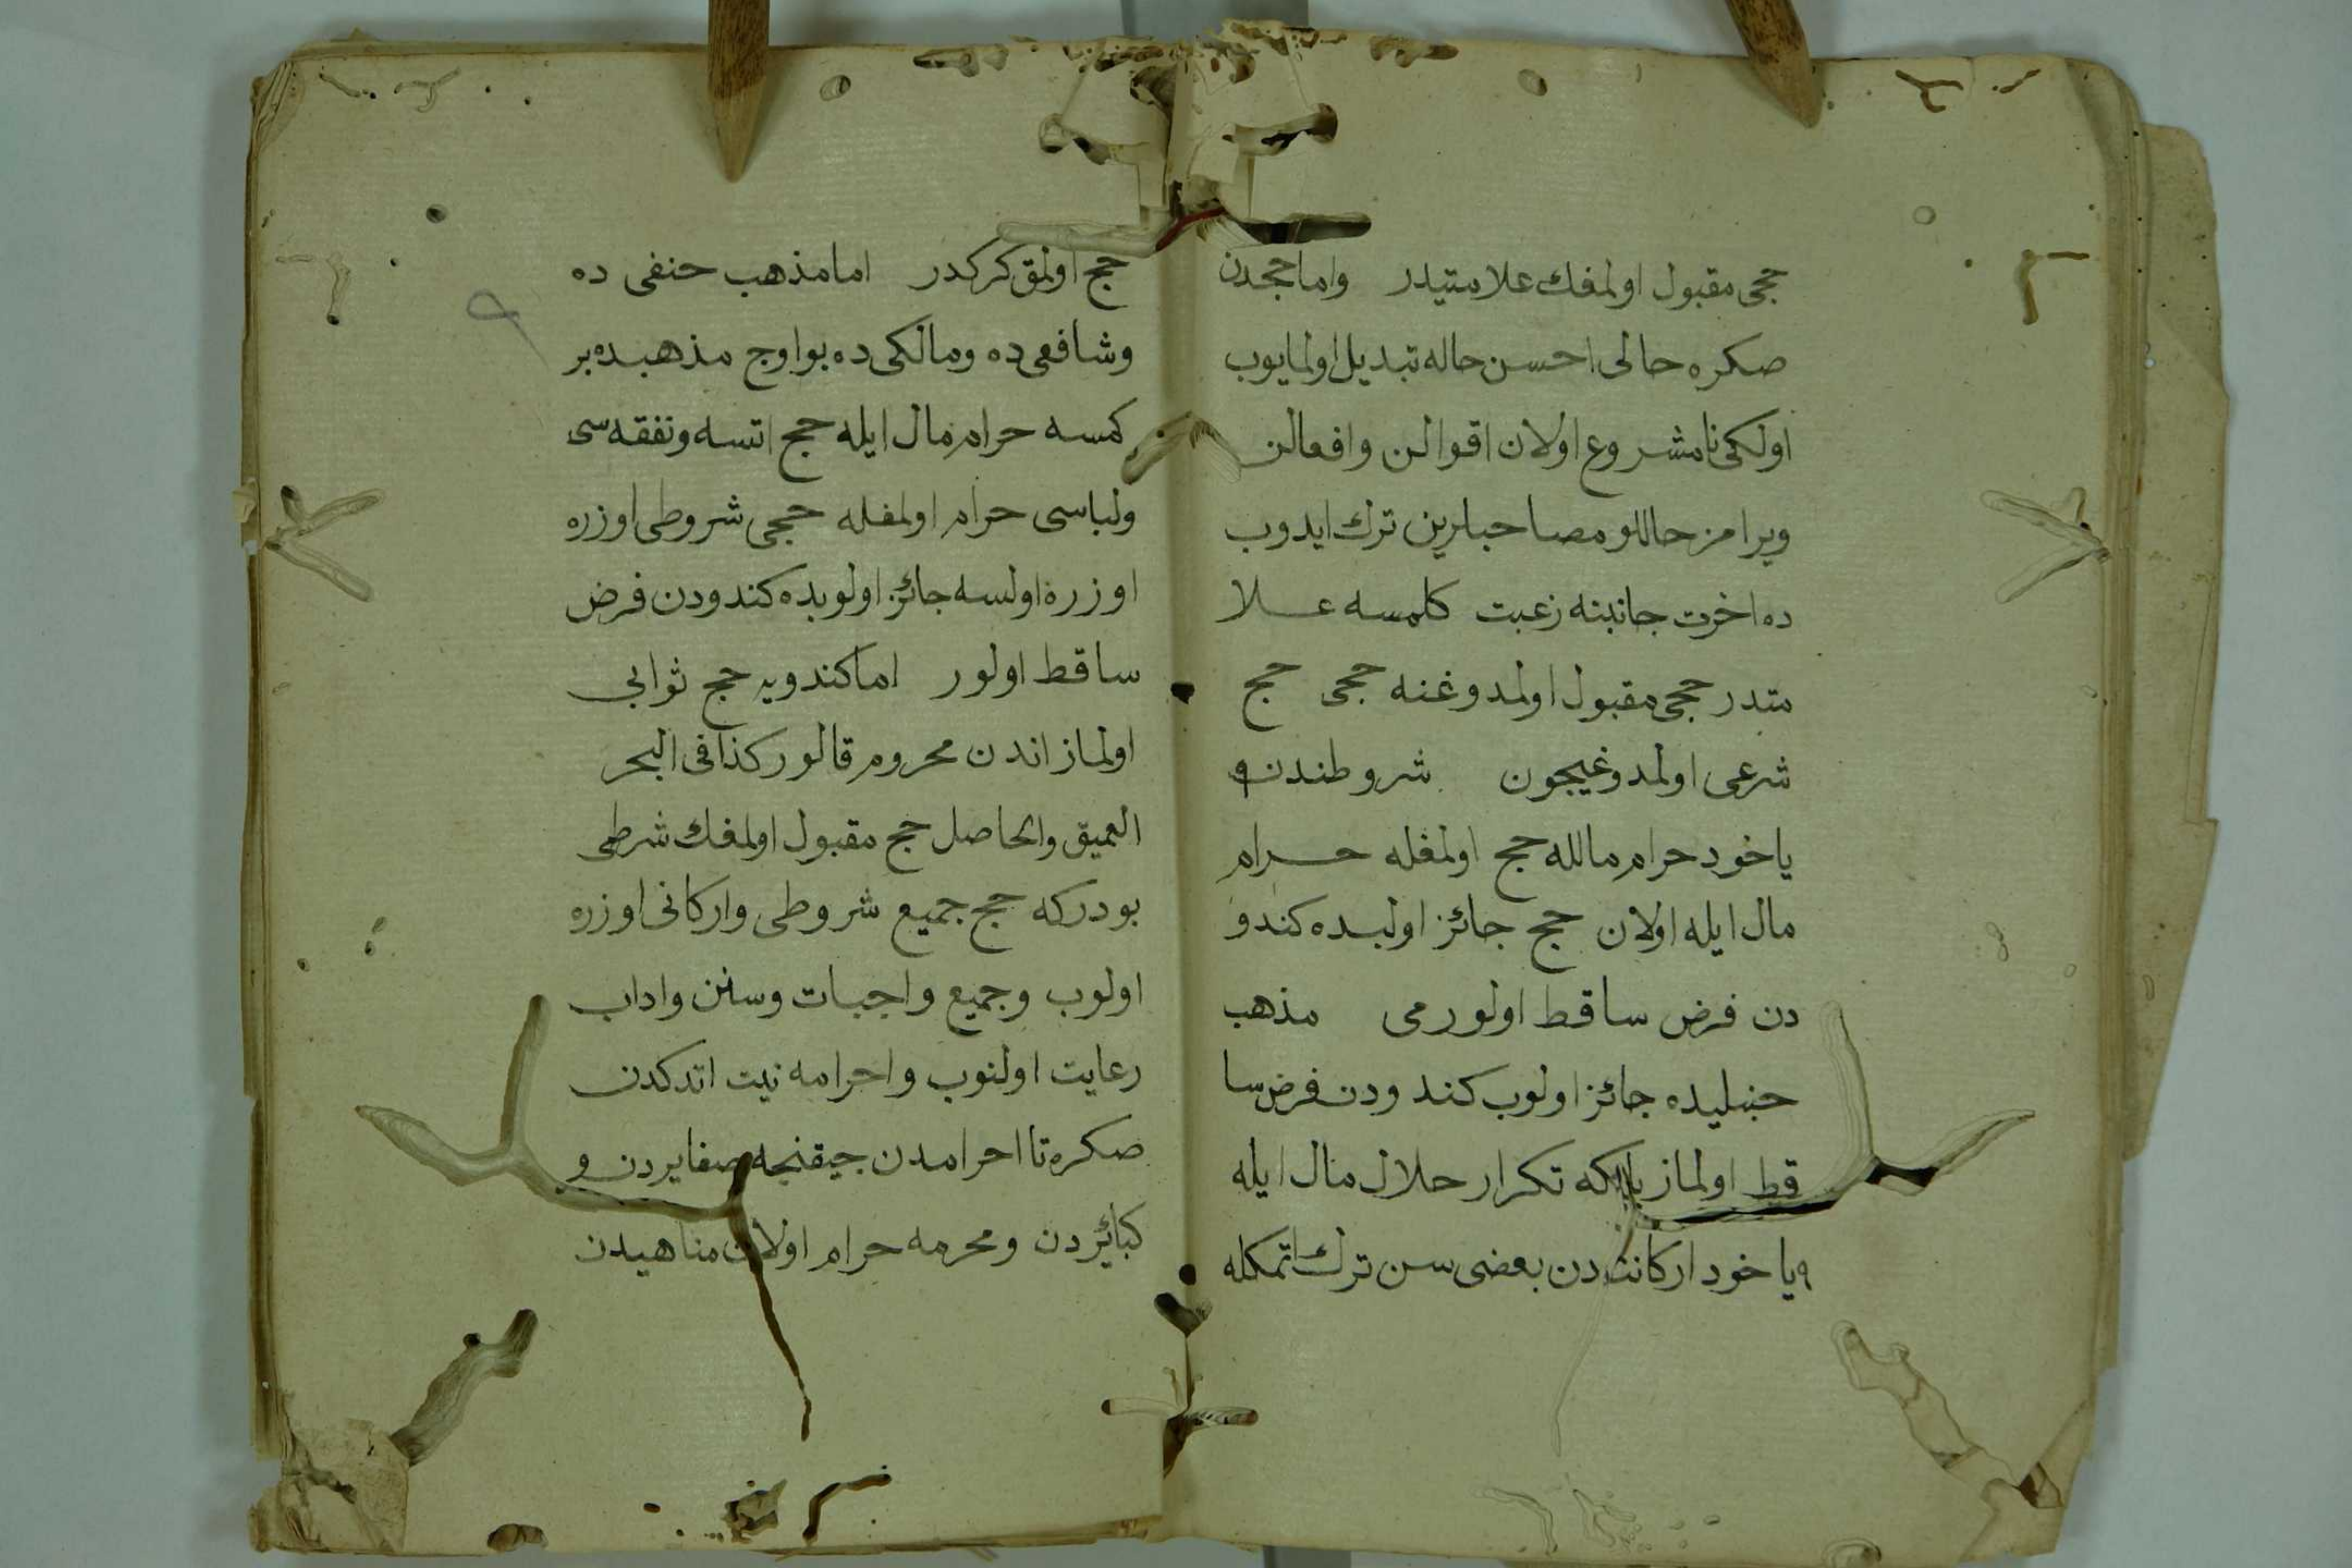 حجی مقبول اولمغك علامتیدر واما حجدن
صکره حالی احسن حاله تبدیل اولمایوب
اولکی نامشروع اولان اقوالن وافعالن
ویرامز حاللو مصاحبلرین ترك ایدوب
ده اخرت جانبنه رغبت کلمسه علا
متدر حجی مقبول اولمدوغنه حجی حج
شرعی اولمدوغیچون شروطندن
یاخود حرام مالله حج اولمغله حرام
مال ایله اولان حج جائز اولبده کندو
دن فرض ساقط اولورمی مذهب
حنبلیده جائز اولوب کندودن فرض سا
قط اولماز بلکه تکرار حلال منال ایله
یاخود ارکانندن بعضی سن ترك اتمکله
حج اولمق کرکدر اما مذهب حنفی ده
وشافعی ده ومالکی ده بو اوج مذهبده بر
کمسه حرام مال ایله حج اتسه ونفقه سی
ولباسی حرام اولمغله حجی شروطی اوزره
اوزره اولسه جائز اولوبده کندودن فرض
ساقط اولور اما کندویه حج ثوابی
اولماز اندن محروم قالور کذا فی البحر
العمیق والحاصل حج مقبول اولمغك شرطی
بودرکه حج جمیع شروطی وارکانی اوزره
اولوب وجمیع واجبات وسنن واداب
رعایت اولنوب واحرامه نیت اتدکدن
صکره تا احرامدن جیقنجه صغایردن و
کبائردن ومحرمه حرام اولان مناهیدن